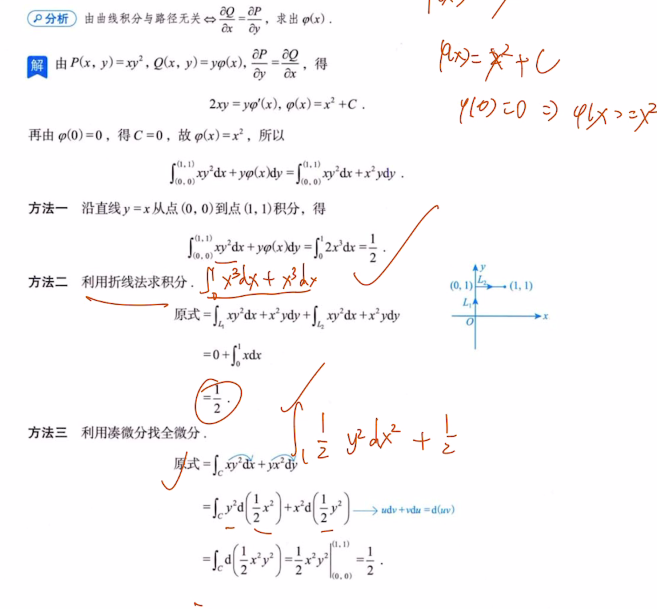 分析 由曲线积分与路径无关⇔∂Q/∂x=∂P/∂y, 求出φ(x).
φ(x)=x²+C
解 由P(x, y)=xy², Q(x, y)=yφ(x), ∂P/∂y=∂Q/∂x, 得
φ(0)=0 ⇒ φ(x)=x²
2xy=yφ′(x), φ(x)=x²+C.
再由φ(0)=0, 得C=0, 故φ(x)=x², 所以
∫_{(0,0)}^{(1,1)} xy²dx+yφ(x)dy=∫_{(0,0)}^{(1,1)} xy²dx+x²ydy.
方法一 沿直线y=x从点(0, 0)到点(1, 1)积分, 得
∫_{(0,0)}^{(1,1)} xy²dx+yφ(x)dy=∫_0^1 2x³dx=1/2.
方法二 利用折线法求积分. ∫_0^1 x³dx+x³dx
原式=∫_{L₁} xy²dx+x²ydy+∫_{L₂} xy²dx+x²ydy
=0+∫_0^1 xdx
=1/2.
y
(0, 1) L₂ (1, 1)
L₁
O x
方法三 利用凑微分找全微分.
∫ 1/2 y²dx²+1/2
原式=∫_C xy²dx+yx²dy
=∫_C y²d(1/2 x²)+x²d(1/2 y²) → udv+vdu=d(uv)
=∫_C d(1/2 x²y²)=1/2 x²y²|_{(0,0)}^{(1,1)}=1/2.